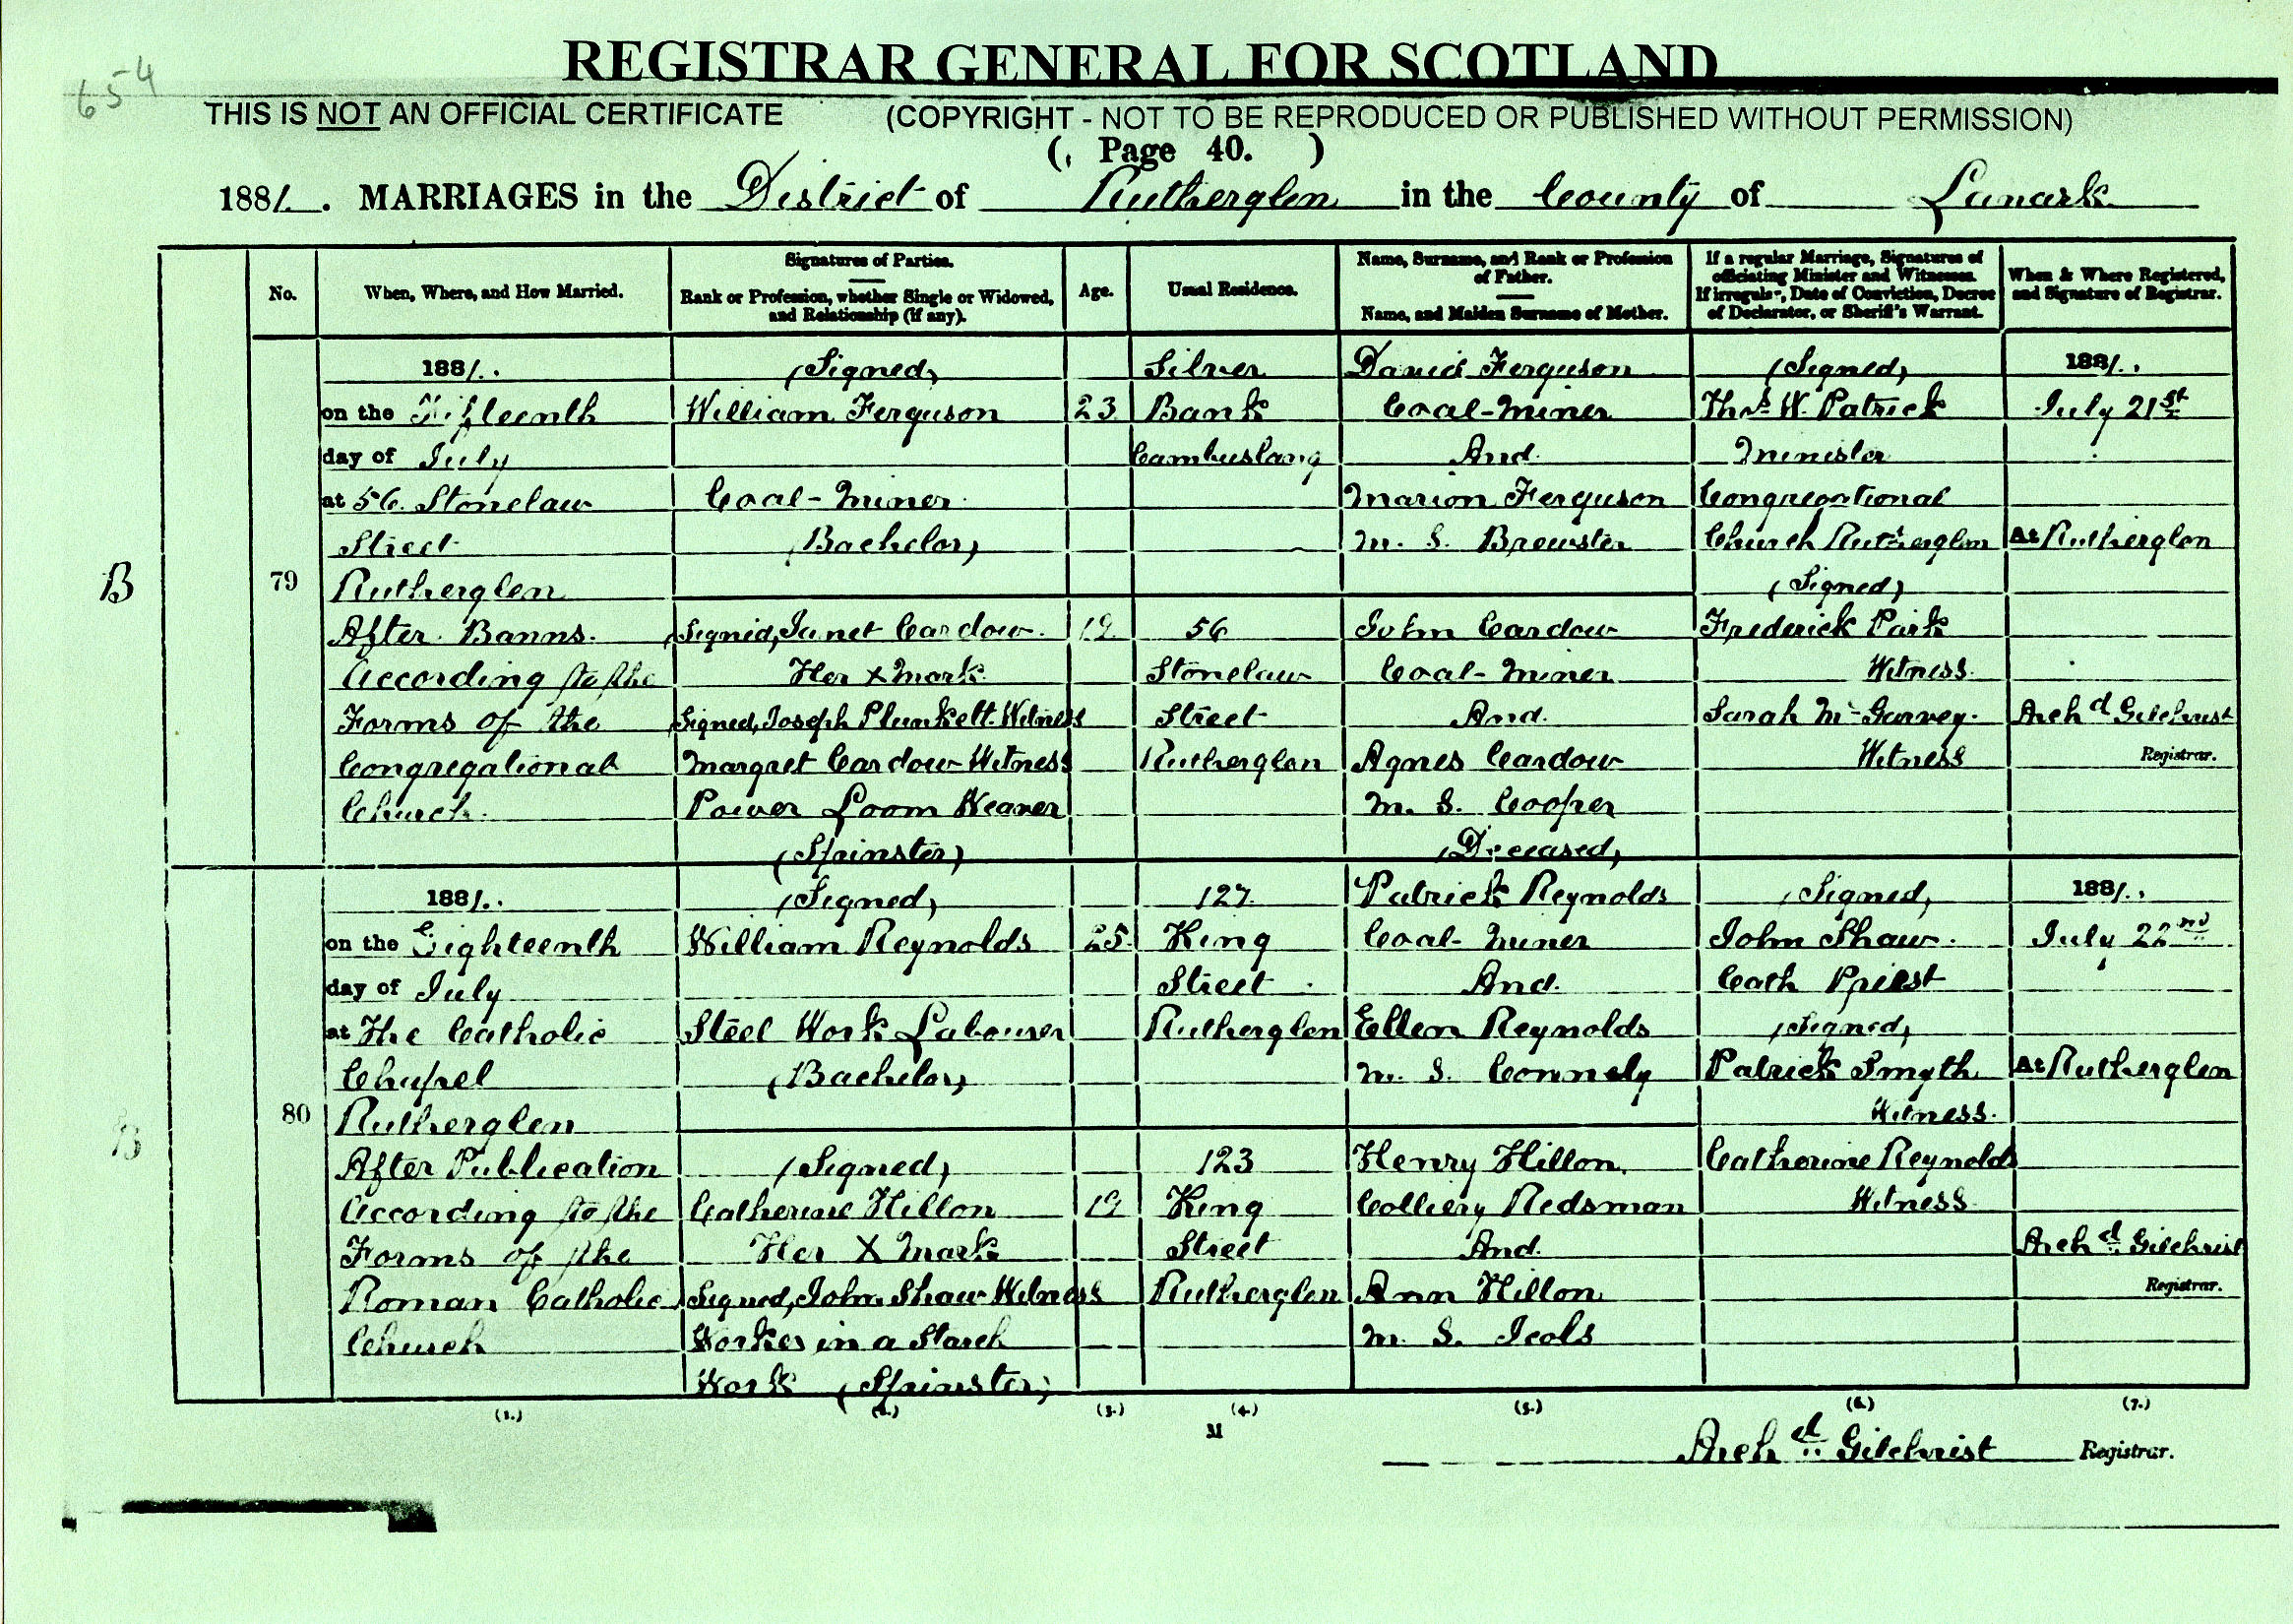 654
REGISTRAR GENERAL FOR SCOTLAND
THIS IS NOT AN OFFICIAL CERTIFICATE (COPYRIGHT - NOT TO BE REPRODUCED OR PUBLISHED WITHOUT PERMISSION)
( Page 40. )
1881. MARRIAGES in the District of Rutherglen in the County of Lanark
No.
When, Where, and How Married.
Signatures of Parties.
Rank or Profession, whether Single or Widowed,
and Relationship (if any).
Age.
Usual Residence.
Name, Surname, and Rank or Profession
of Father.
Name, and Maiden Surname of Mother.
If a regular Marriage, Signatures of
officiating Minister and Witnesses.
If irregular, Date of Conviction, Decree
of Declarator, or Sheriff's Warrant.
When & Where Registered,
and Signature of Registrar.
B
79
1881.
on the Fifteenth
day of July
at 56 Stonelaw
Street
Rutherglen
After Banns.
According to the
Forms of the
Congregational
Church.
(Signed)
William Ferguson
Coal-Miner
(Bachelor)
(Signed) Janet Cardow.
Her X Mark
(Signed) Joseph Plunkett Witness
Margret Cardow Witness
Power Loom Weaver
(Spinster)
23
19
Silver
Bank
Cambuslang
56
Stonelaw
Street
Rutherglen
David Ferguson
Coal-Miner
And
Marion Ferguson
M. S. Brewster
John Cardow
Coal-Miner
And
Agnes Cardow
M. S. Cooper
(Deceased)
(Signed)
Thos W. Patrick
Minister
Congregational
Church Rutherglen
(Signed)
Frederick Park
Witness.
Sarah McGarvey.
Witness
1881.
July 21st
At Rutherglen
Archd Gilchrist
Registrar.
B
80
1881.
on the Eighteenth
day of July
at The Catholic
Chapel
Rutherglen
After Publication
According to the
Forms of the
Roman Catholic
Church
(Signed)
William Reynolds
Steel Work Labourer
(Bachelor)
(Signed)
Catherine Hillon
Her X Mark
(Signed) John Shaw Witness
Worker in a Starch
Work (Spinster)
25
19
127
King
Street
Rutherglen
123
King
Street
Rutherglen
Patrick Reynolds
Coal-Miner
And
Ellen Reynolds
M. S. Connely
Henry Hillon
Colliery Redsman
And
Ann Hillon
M. S. Icols
(Signed)
John Shaw.
Cath Priest
(Signed)
Patrick Smyth
Witness.
Catherine Reynolds
Witness
1881.
July 22nd
At Rutherglen
Archd Gilchrist
Registrar.
(1.) (2.) (3.) (4.) (5.) (6.) (7.)
M
Archd Gilchrist Registrar.